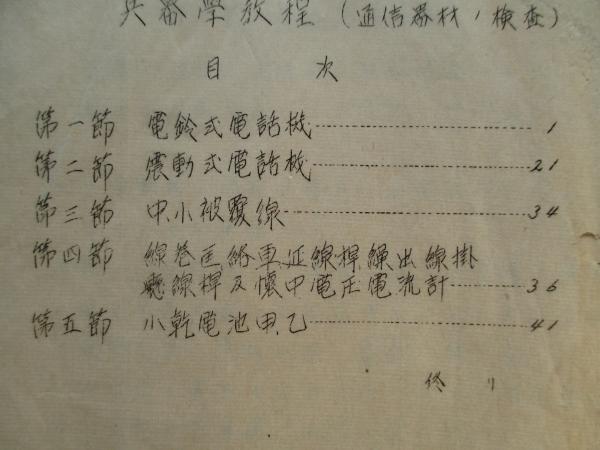 兵器學教程(通信器材ノ檢査)
目 次
第一節 電鈴式電話機 1
第二節 震動式電話機 21
第三節 中小被覆線 34
第四節 線巻匡絡車延線桿繰出線掛
線桿及懐中電圧電流計 36
第五節 小乾電池甲、乙 41
終リ